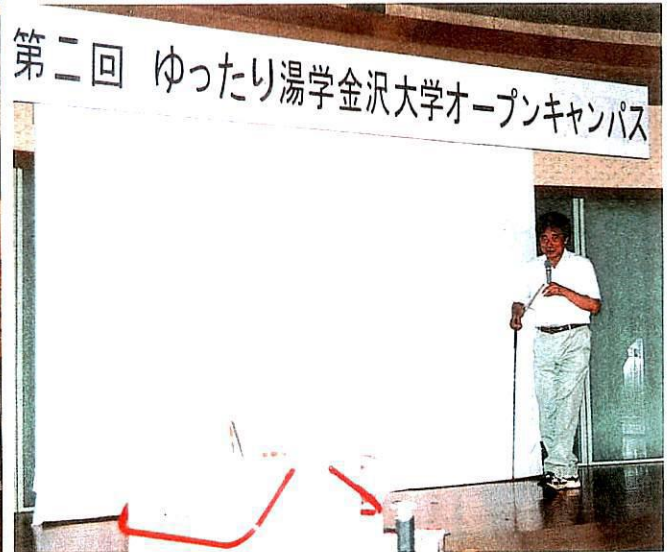 第二回 ゆったり湯学金沢大学オープンキャンパス